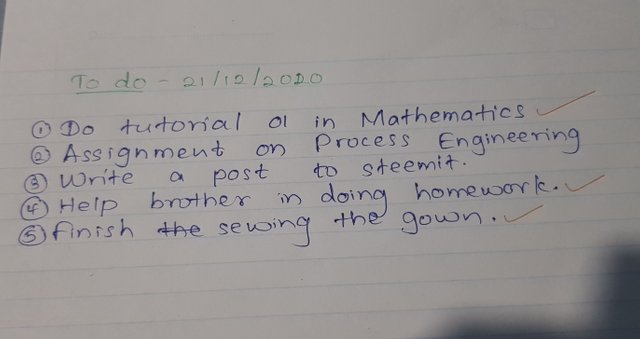 To do - 21/12/2020
① Do tutorial 01 in Mathematics ✓
② Assignment on Process Engineering
③ Write a post to steemit.
④ Help brother in doing homework. ✓
⑤ finish the sewing the gown. ✓